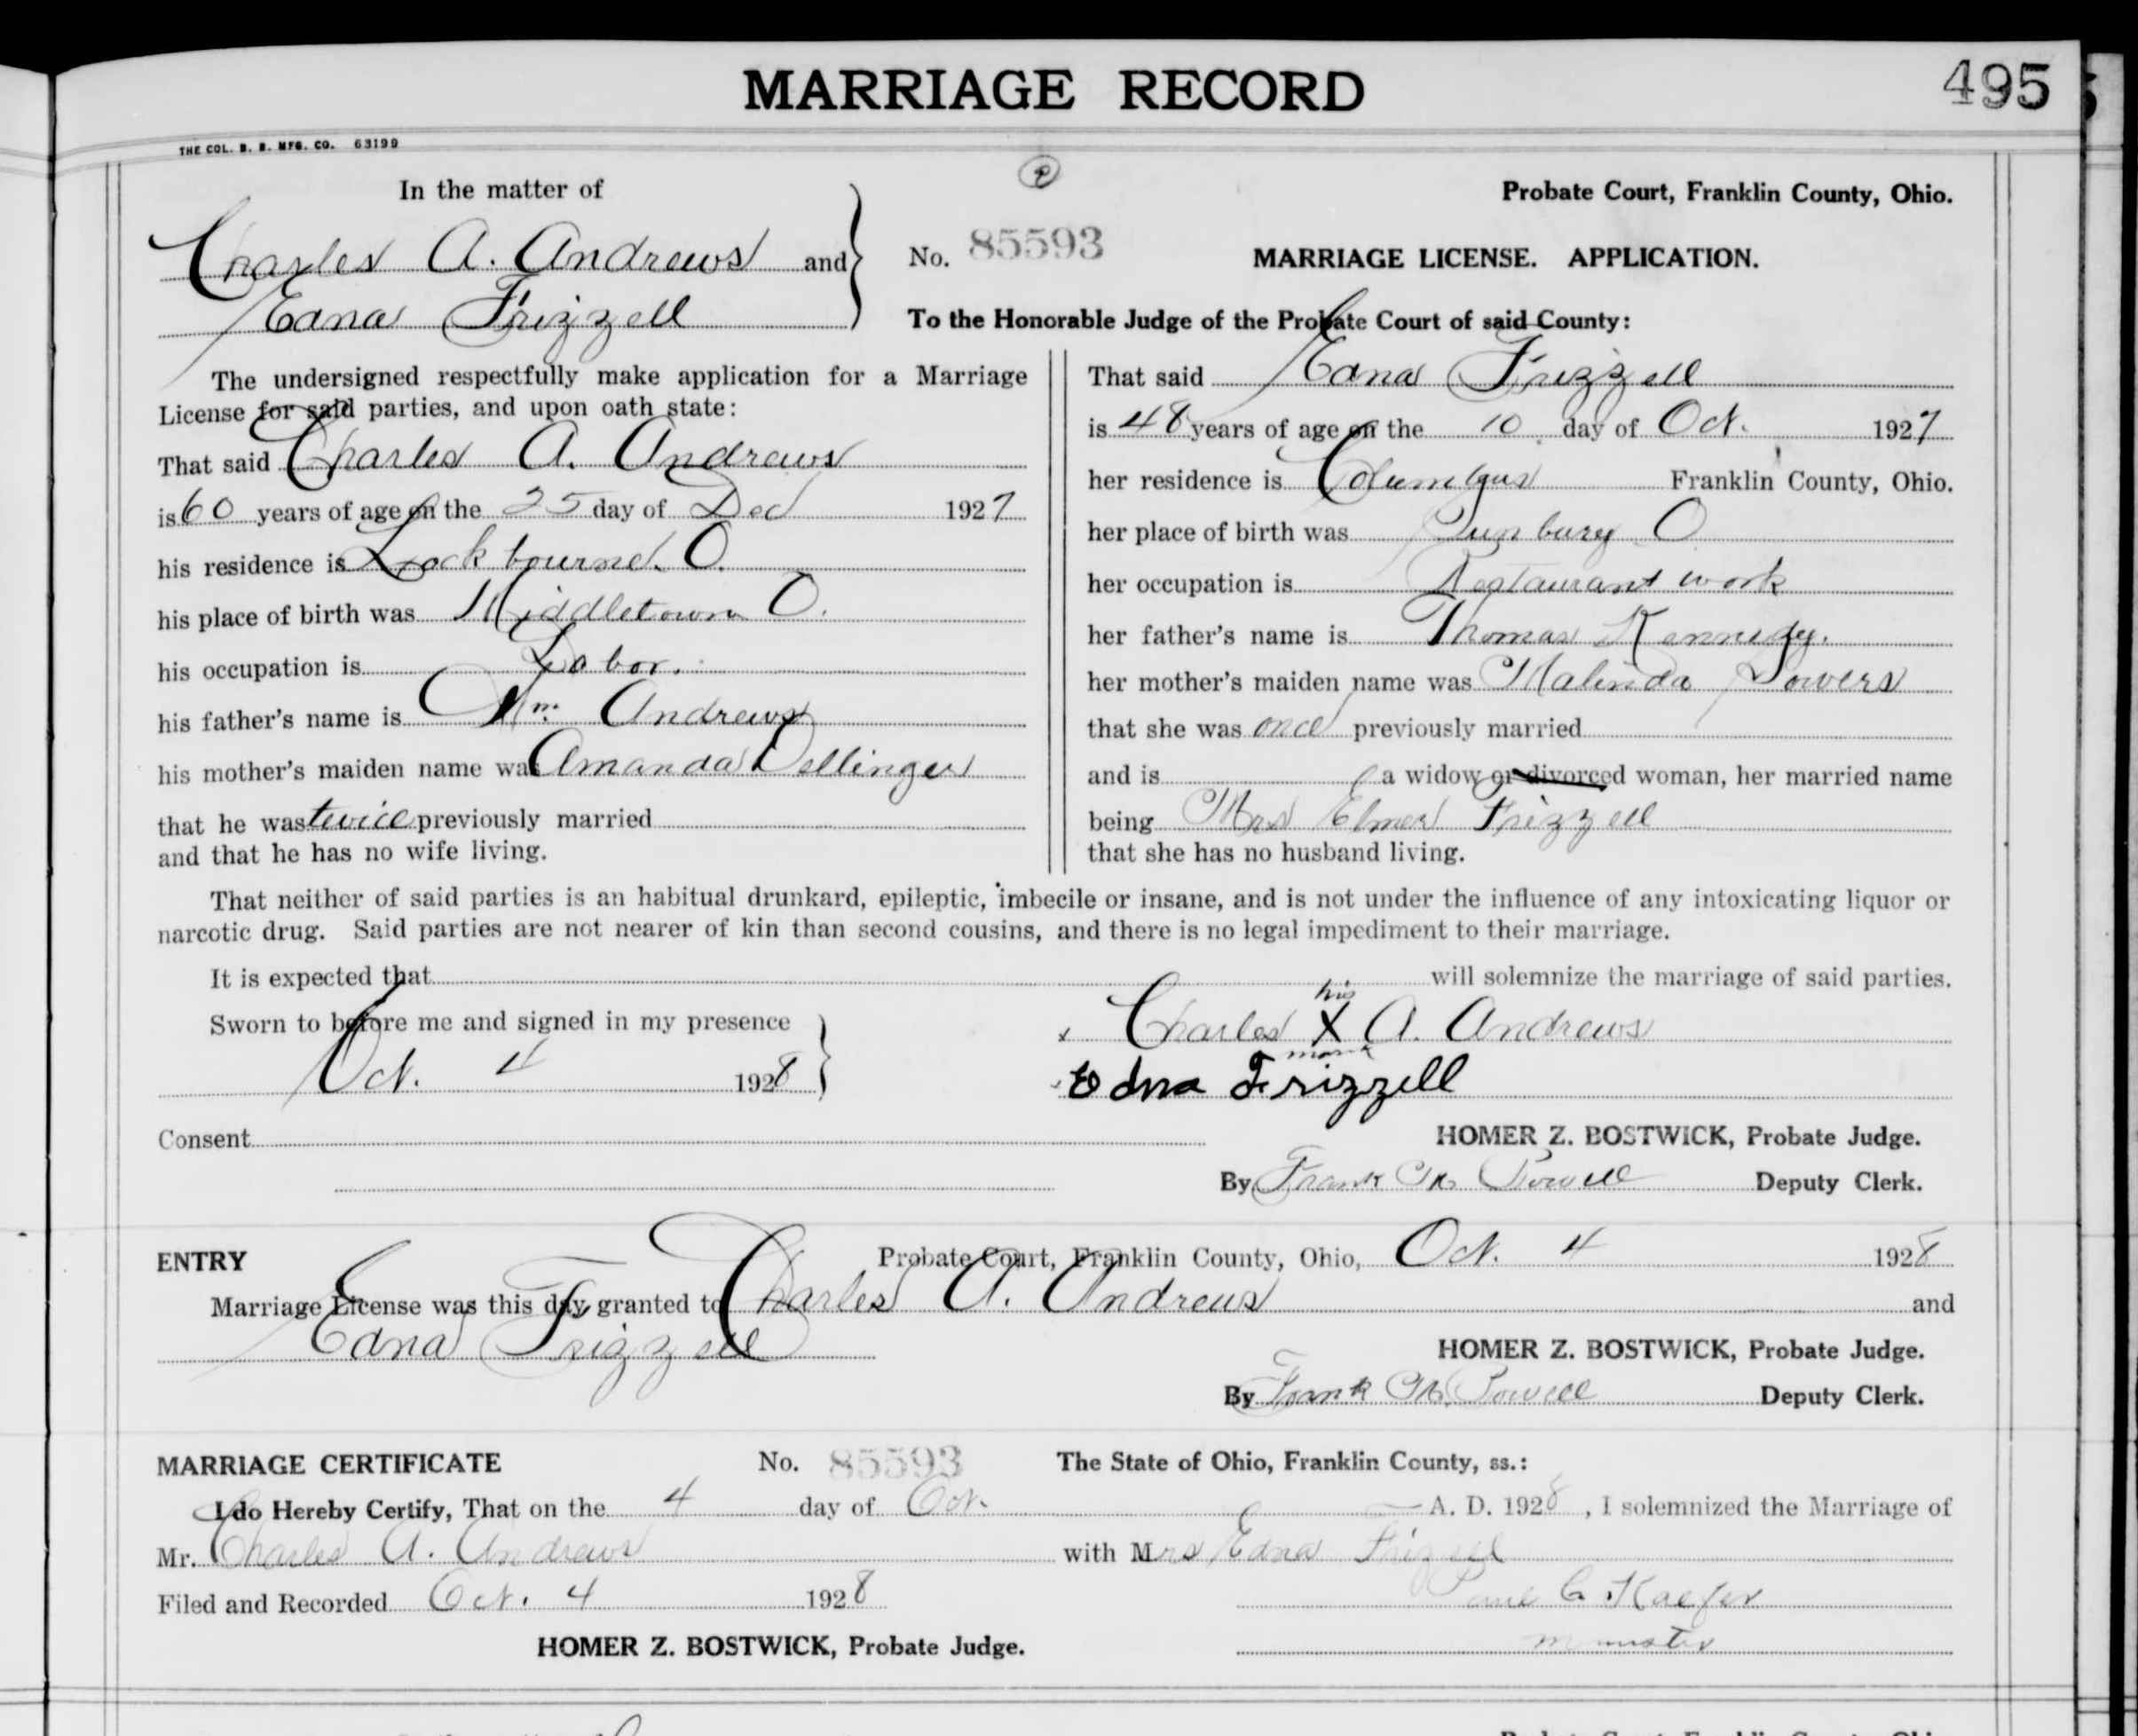 MARRIAGE RECORD
495
THE COL. B. B. MFG. CO. 63199
In the matter of
Charles A. Andrews and
Edna Frizzell
No. 85593
Probate Court, Franklin County, Ohio.
MARRIAGE LICENSE. APPLICATION.
To the Honorable Judge of the Probate Court of said County:
The undersigned respectfully make application for a Marriage
License for said parties, and upon oath state:
That said Charles A. Andrews
is 60 years of age on the 25 day of Dec 1927
his residence is Lockbourne. O.
his place of birth was Middletown O.
his occupation is Labor.
his father's name is Wm. Andrews
his mother's maiden name was Amanda Dellinger
that he was twice previously married
and that he has no wife living.
That said Edna Frizzell
is 48 years of age on the 10 day of Oct. 1927
her residence is Columbus Franklin County, Ohio.
her place of birth was Sunbury O
her occupation is Restaurant work
her father's name is Thomas Kennedy.
her mother's maiden name was Malinda Sowers
that she was once previously married
and is a widow or divorced woman, her married name
being Mrs Elmer Frizzell
that she has no husband living.
That neither of said parties is an habitual drunkard, epileptic, imbecile or insane, and is not under the influence of any intoxicating liquor or
narcotic drug. Said parties are not nearer of kin than second cousins, and there is no legal impediment to their marriage.
It is expected that will solemnize the marriage of said parties.
Sworn to before me and signed in my presence
Oct. 4 1928
his
x Charles X A. Andrews
mark
Edna Frizzell
Consent
HOMER Z. BOSTWICK, Probate Judge.
By Frank M. Powell Deputy Clerk.
ENTRY
Probate Court, Franklin County, Ohio, Oct. 4 1928
Marriage License was this day granted to Charles A. Andrews and
Edna Frizzell
HOMER Z. BOSTWICK, Probate Judge.
By Frank M. Powell Deputy Clerk.
MARRIAGE CERTIFICATE No. 85593 The State of Ohio, Franklin County, ss.:
I do Hereby Certify, That on the 4 day of Oct. A. D. 1928, I solemnized the Marriage of
Mr. Charles A. Andrews with Mrs Edna Frizzell
Filed and Recorded Oct. 4 1928
Paul C. Kaefer
minister
HOMER Z. BOSTWICK, Probate Judge.